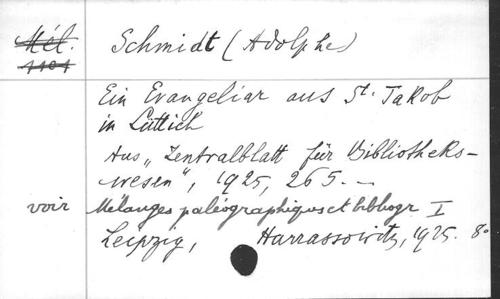 Mél. Schmidt (Adolphe)
1101
Ein Evangeliar aus St. Jakob
in Lüttich
Aus „Zentralblatt für Bibliotheks-
wesen“, 1925, 265. —
voir Mélanges paléographiques et bibliogr I
Leipzig, Harrassowitz, 1925. 8°